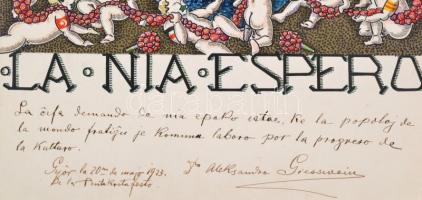 LA · NIA · ESPERO
La ĉefa demando de nia epoko estas, ke la popoloj de
la mondo fratiĝu je komuna laboro por la progreso de
la Kulturo.
Győr la 20an de majo 1923. Dro Aleksandro Giesswein
En la Pentekosta festo